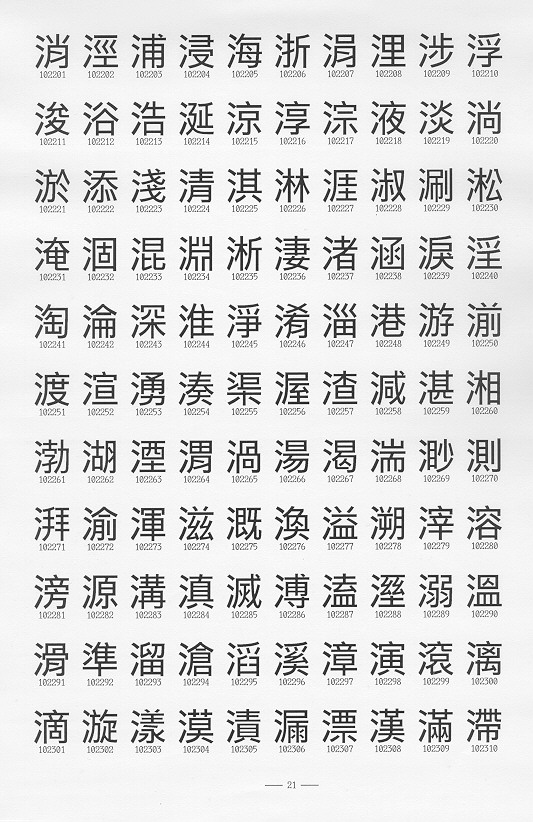 消 涇 浦 浸 海 浙 涓 浬 涉 浮
102201 102202 102203 102204 102205 102206 102207 102208 102209 102210
浚 浴 浩 涎 涼 淳 淙 液 淡 淌
102211 102212 102213 102214 102215 102216 102217 102218 102219 102220
淤 添 淺 清 淇 淋 涯 淑 涮 淞
102221 102222 102223 102224 102225 102226 102227 102228 102229 102230
淹 涸 混 淵 淅 淒 渚 涵 淚 淫
102231 102232 102233 102234 102235 102236 102237 102238 102239 102240
淘 淪 深 淮 淨 淆 淄 港 游 湔
102241 102242 102243 102244 102245 102246 102247 102248 102249 102250
渡 渲 湧 湊 渠 渥 渣 減 湛 湘
102251 102252 102253 102254 102255 102256 102257 102258 102259 102260
渤 湖 湮 渭 渦 湯 渴 湍 渺 測
102261 102262 102263 102264 102265 102266 102267 102268 102269 102270
湃 渝 渾 滋 溉 渙 溢 溯 滓 溶
102271 102272 102273 102274 102275 102276 102277 102278 102279 102280
滂 源 溝 滇 滅 溥 溘 溼 溺 溫
102281 102282 102283 102284 102285 102286 102287 102288 102289 102290
滑 準 溜 滄 滔 溪 漳 演 滾 漓
102291 102292 102293 102294 102295 102296 102297 102298 102299 102300
滴 漩 漾 漠 漬 漏 漂 漢 滿 滯
102301 102302 102303 102304 102305 102306 102307 102308 102309 102310
— 21 —